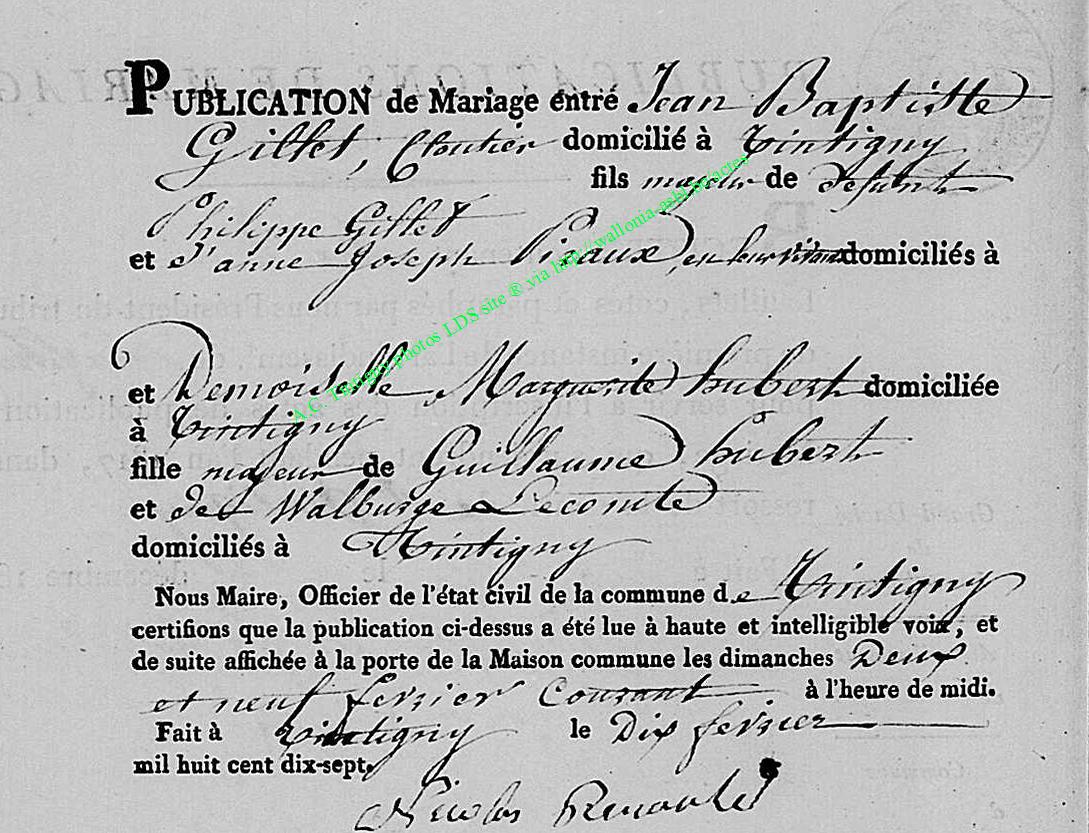 PUBLICATION de Mariage entre Jean Baptiste
Gillet, Cloutier domicilié à Tintigny
fils majeur de defunt
Philippe Gillet
et d'anne Joseph Piraux, en leur vivant domiciliés à
et Demoiselle Marguerite hubert domiciliée
à Tintigny
fille majeur de Guillaume hubert
et de Walburge Lecomte
domiciliés à Tintigny
Nous Maire, Officier de l'état civil de la commune de Tintigny
certifions que la publication ci-dessus a été lue à haute et intelligible voix, et
de suite affichée à la porte de la Maison commune les dimanches Deux
et neuf fevrier Courant à l'heure de midi.
Fait à Tintigny le Dix fevrier
mil huit cent dix-sept.
Nicolas
A.C. Tintigny photos LDS site ® via http://wallonia-asbl.be/actes